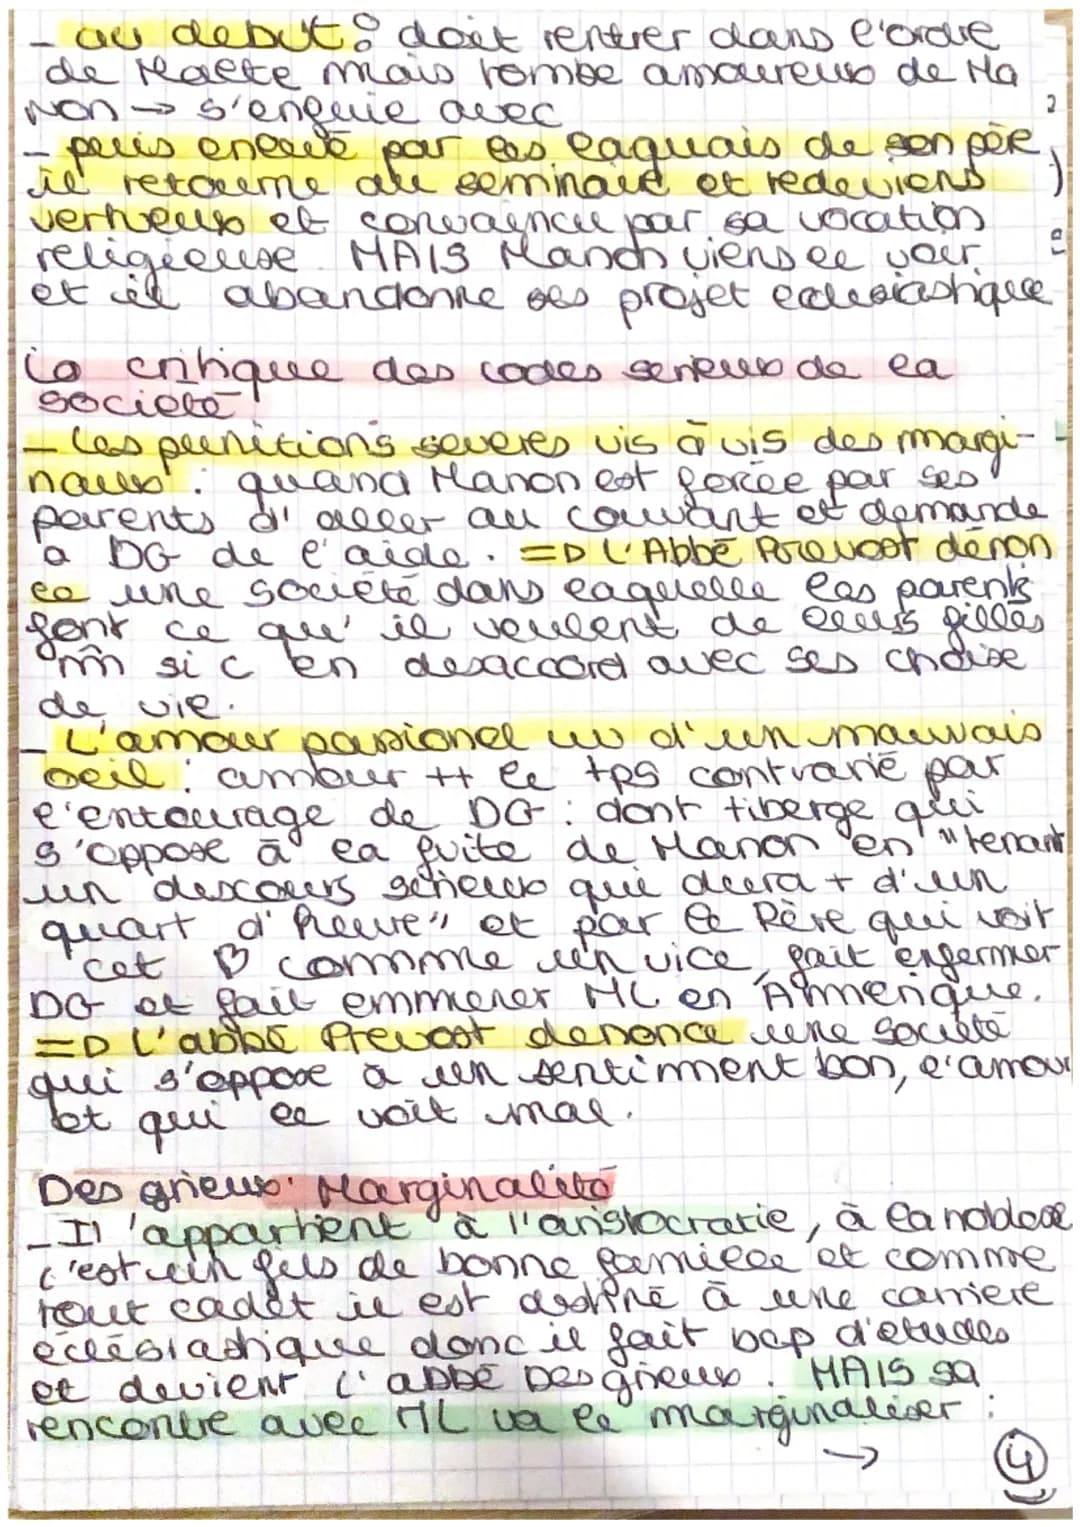 - au debut : doit rentrer dans l'ordre
de Malte mais tombe amoureux de Ma
non → s'enfuie avec
- puis enlevé par les laquais de son père,
il retourne au seminaire et redeviens
vertueux et convaincu par sa vocation
religieuse MAIS Manon viens le voir
et il abandonne ses projet eclesiastique
la critique des codes serieux de la
société
- les punitions severes vis à vis des margi-
naux : quand Manon est forcée par ses
parents d'aller au couvant et demande
a DG de l'aide. => L'Abbé Prevost dénon
ce une société dans laquelle les parents
font ce qu'il veulent de leurs filles
mm si c en desaccord avec ses choix
de vie.
- L'amour passionel vu d'un mauvais
oeil : amour ++ le tps contrarié par
l'entourage de DG : dont tiberge qui
s'oppose à la fuite de Manon en "tenant
un descours serieux qui dura + d'un
quart d'heure" et par le Père qui voit
cet ♡ comme un vice, fait enfermer
DG et fait emmener ML en Amerique.
=> L'abbé Prevost denonce une société
qui s'oppose à un sentiment bon, l'amour
et qui le voit mal.
Des grieux : Marginalité
- Il appartient à l'aristocratie, à la noblesse
c'est un fils de bonne famille et comme
tout cadet il est destiné à une carriere
éclésiastique donc il fait bcp d'etudes
et devient l'abbé Des grieux. MAIS sa
rencontre avec ML va le marginaliser :
→ 4